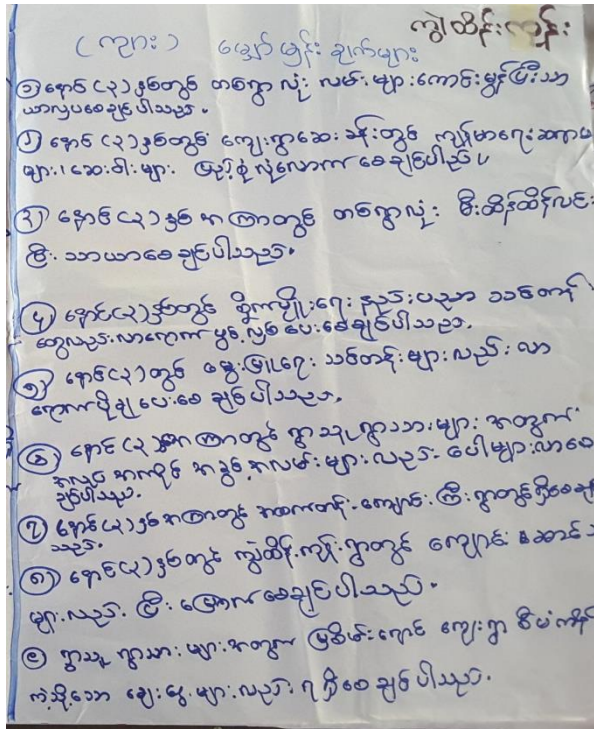 ကျွဲထိန်းကျွန်း
(ကျား) မျှော်မှန်းချက်များ
၁ နောင် (၃) နှစ်တွင် တစ်ရွာလုံး လမ်းများကောင်းမွန်ပြီးသာ
ယာလှပစေချင်ပါသည်။
၂ နောင် (၃) နှစ်တွင် ကျေးရွာဆေးခန်းတွင် ကျန်းမာရေးဆရာမ
များ၊ ဆေးဝါးများ ပြည့်စုံလုံလောက်စေချင်ပါသည်။
၃ နောင် (၃) နှစ်အကြာတွင် တစ်ရွာလုံး မီးထိန်ထိန်လင်း
ပြီး သာယာစေချင်ပါသည်။
၄ နောင် (၃) နှစ်တွင် စိုက်ပျိုးရေး နည်းပညာ သင်တန်း
တွေလည်းလာရောက် ဖွင့်လှစ်ပေးစေချင်ပါသည်။
၅ နောင် (၃) တွင် မွေးမြူရေး သင်တန်းများလည်း လာ
ရောက်ပို့ချပေးစေချင်ပါသည်။
၆ နောင် (၃) နှစ်အကြာတွင် ရွာသူ၊ ရွာသားများ အတွက်
အလုပ်အကိုင် အခွင့်အလမ်းများလည်း ပေါများလာစေ
ချင်ပါသည်။
၇ နောင် (၃) နှစ်အကြာတွင် အထက်တန်းကျောင်းကြီး ရွာတွင်ရှိစေချင်
သည်။
၈ နောင် (၃) နှစ်တွင် ကျွဲထိန်းကျွန်းရွာတွင် ကျောင်းဆောင်
များလည်း ပြီးမြောက်စေချင်ပါသည်။
၉ ရွာသူ ရွာသားများအတွက် မြစိမ်းရောင် ကျေးရွာ စီမံကိန်း
ကဲ့သို့သော ချေးငွေများလည်း ရရှိစေချင်ပါသည်။